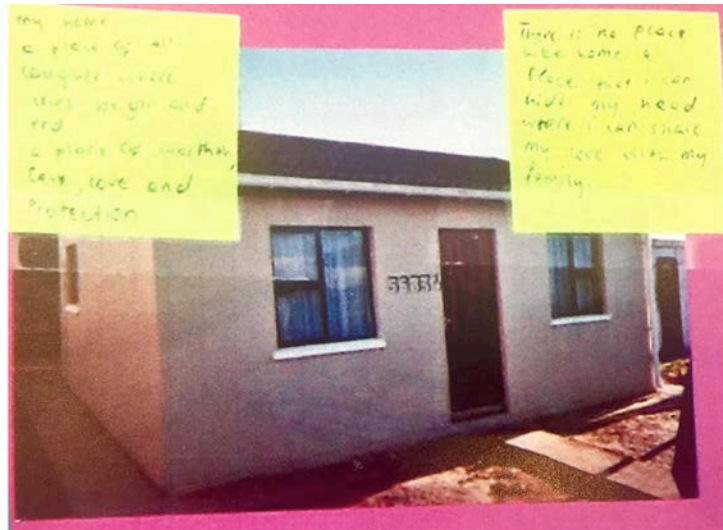 my home
a place of all
laughter where
lives begin and
end
a place of
care, love and
Protection
There is no place
like home a
Place that i can
hide my head
where i can share
my love with my
family